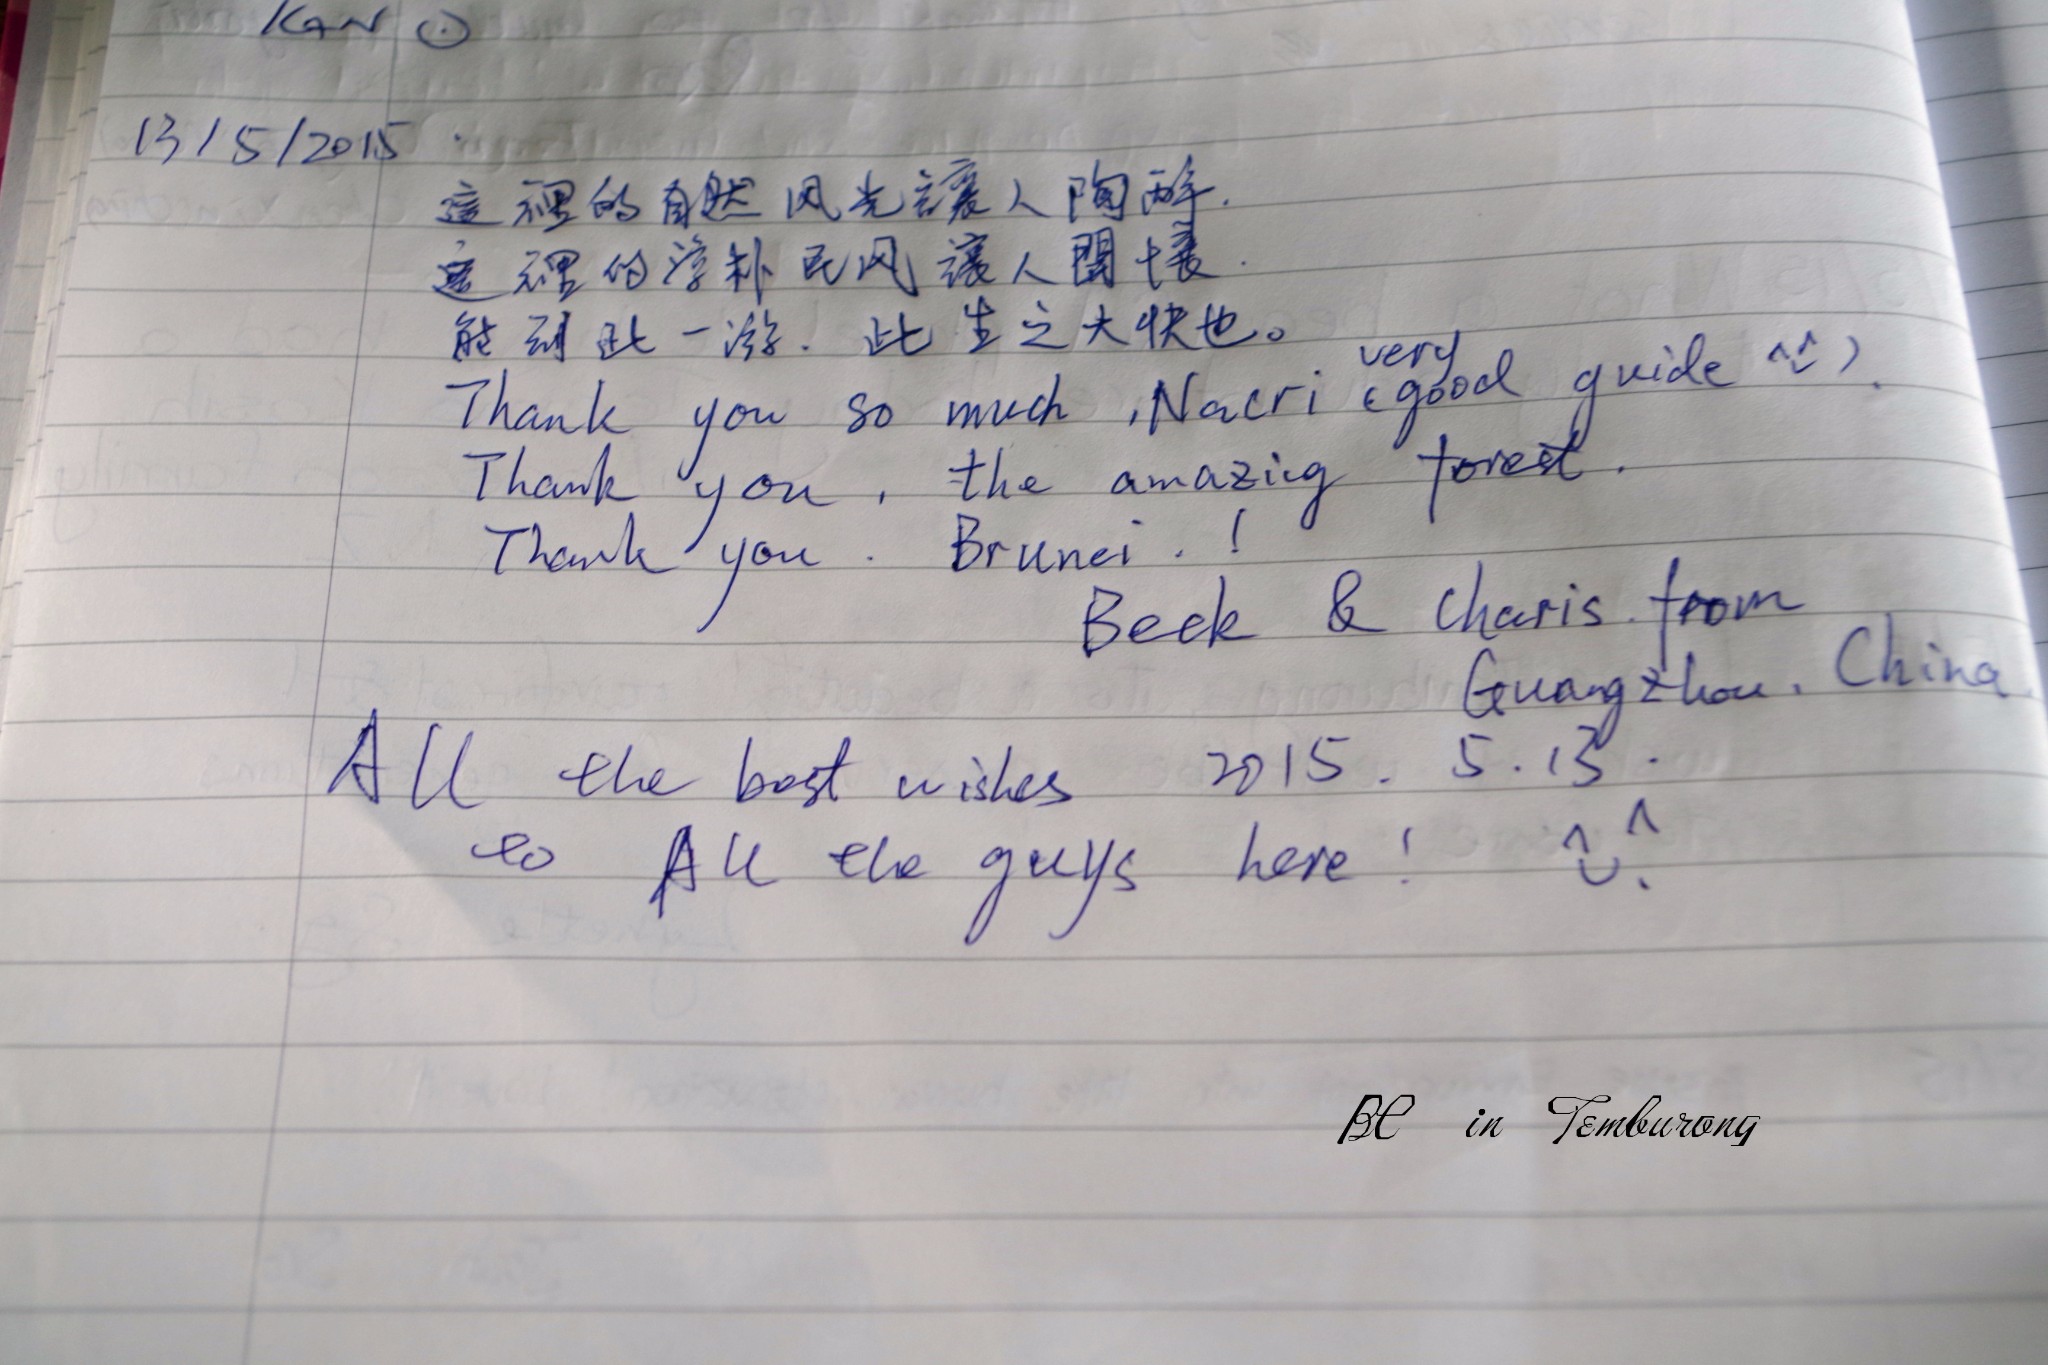 KAN
13/5/2015
這裡的自然风光讓人陶醉.
這裡的淳朴民风讓人開懷.
能到此一游. 此生之大快也。
Thank you so much, Nacri (very good guide ^^).
Thank you, the amazing forest.
Thank you. Brunei. !
Beek & Charis. from
Guangzhou. China.
All the best wishes 2015. 5.13.
to All the guys here! ^^
BC in Temburong